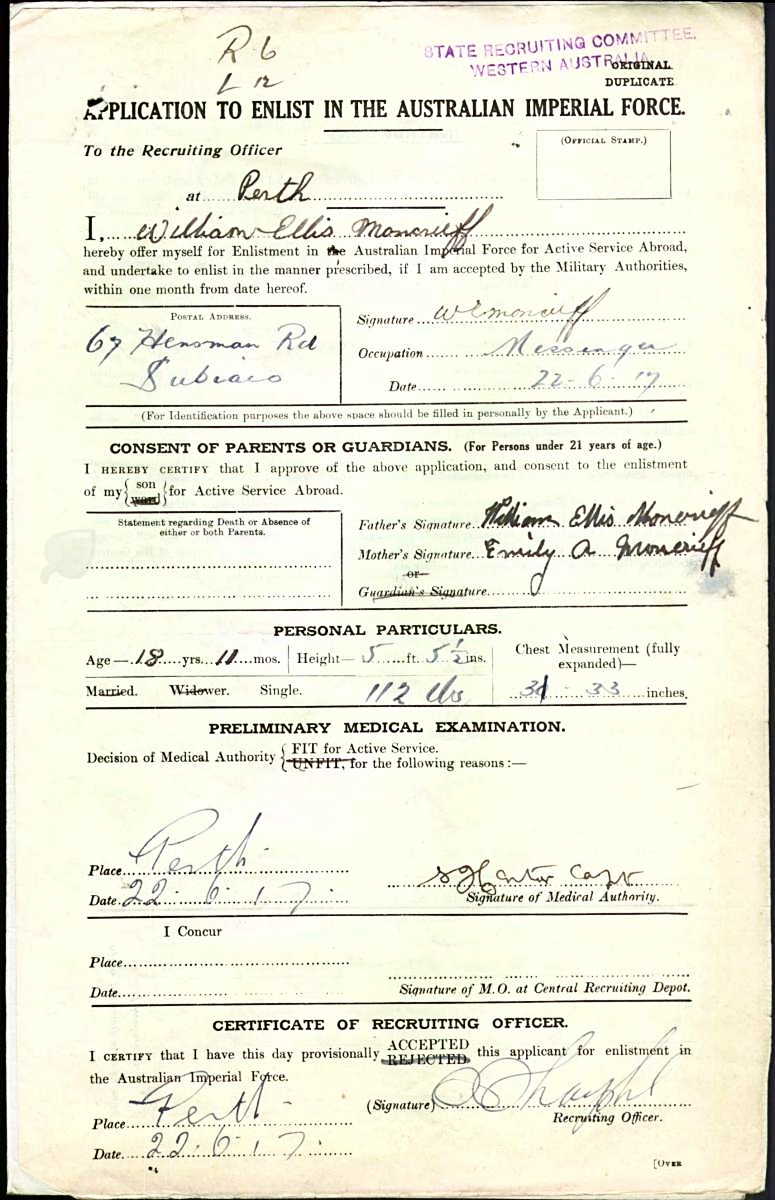 R 6
L 12
STATE RECRUITING COMMITTEE.
WESTERN AUSTRALIA
ORIGINAL
DUPLICATE
APPLICATION TO ENLIST IN THE AUSTRALIAN IMPERIAL FORCE.
To the Recruiting Officer
(OFFICIAL STAMP.)
at Perth
I, William Ellis Moncrieff
hereby offer myself for Enlistment in the Australian Imperial Force for Active Service Abroad,
and undertake to enlist in the manner prescribed, if I am accepted by the Military Authorities,
within one month from date hereof.
POSTAL ADDRESS.
67 Hensman Rd
Subiaco
Signature W E Moncrieff
Occupation Messenger
Date 22-6-17
(For Identification purposes the above space should be filled in personally by the Applicant.)
CONSENT OF PARENTS OR GUARDIANS. (For Persons under 21 years of age.)
I HEREBY CERTIFY that I approve of the above application, and consent to the enlistment
of my {son ward} for Active Service Abroad.
Statement regarding Death or Absence of
either or both Parents.
Father's Signature William Ellis Moncrieff
Mother's Signature Emily A Moncrieff
or
Guardian's Signature
PERSONAL PARTICULARS.
Age—18 yrs. 11 mos. Height—5 ft. 5½ ins. Chest Measurement (fully
expanded)—
Married. Widower. Single. 112 lbs 31-33 inches.
PRELIMINARY MEDICAL EXAMINATION.
Decision of Medical Authority { FIT for Active Service.
UNFIT, for the following reasons:—
Place Perth
Date 22.6.17 Capt
Signature of Medical Authority.
I Concur
Place
Date Signature of M.O. at Central Recruiting Depot.
CERTIFICATE OF RECRUITING OFFICER.
I CERTIFY that I have this day provisionally ACCEPTED REJECTED this applicant for enlistment in
the Australian Imperial Force.
Place Perth (Signature)
Recruiting Officer.
Date 22.6.17
[OVER